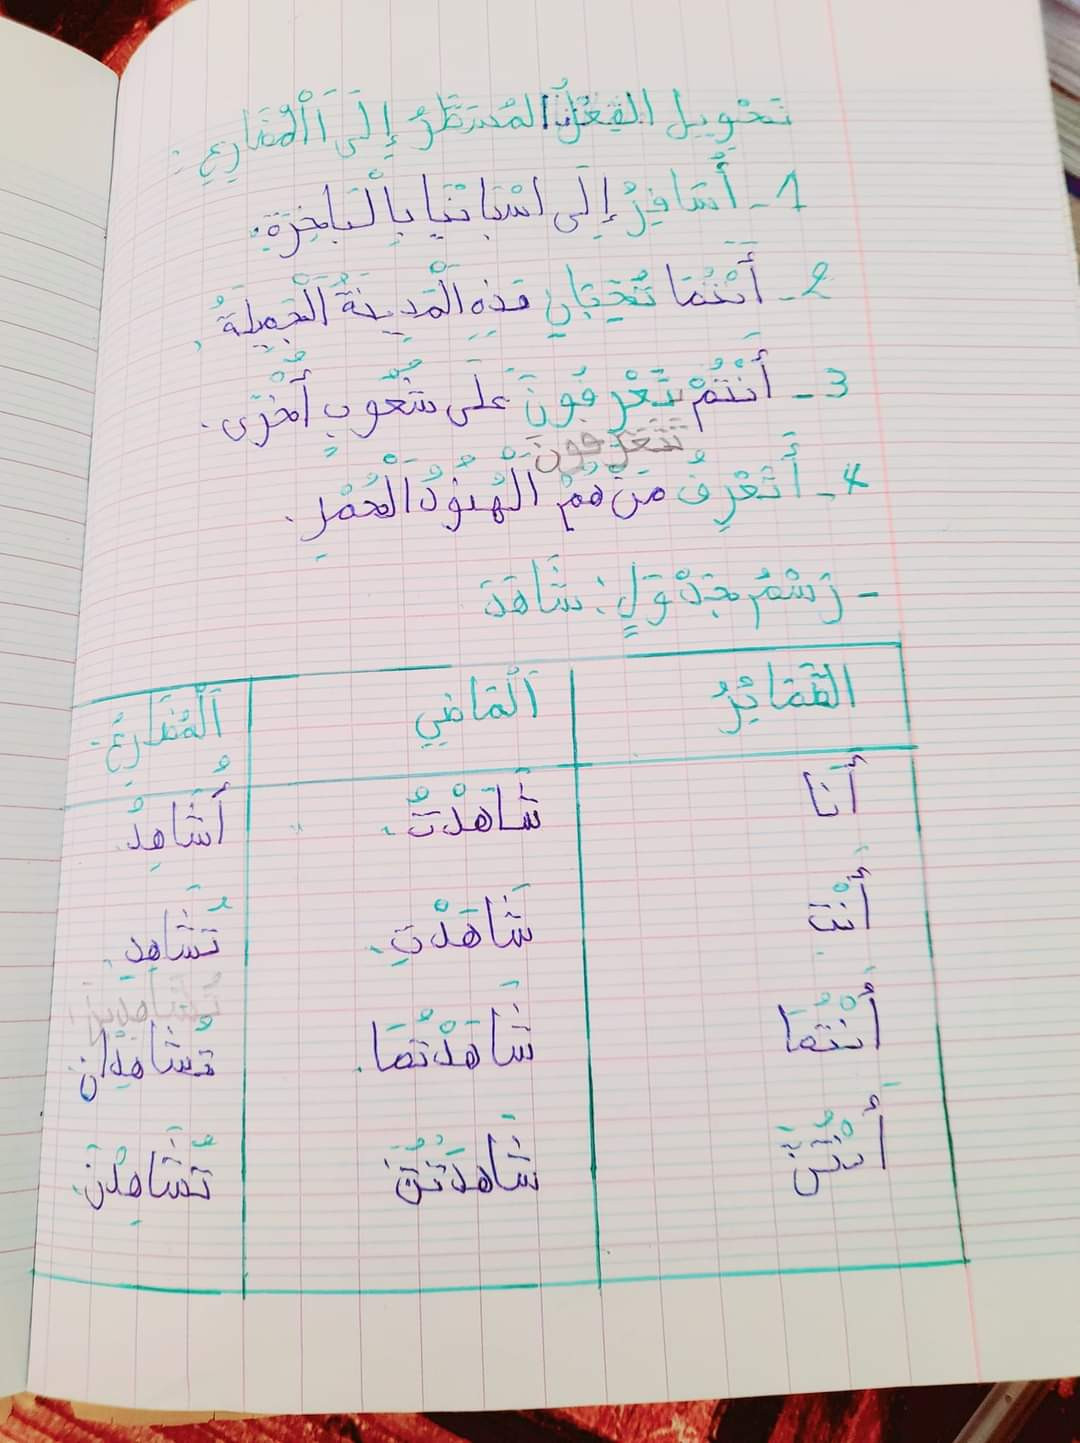 تَحْوِيل الفِعْلُ المُسَطَّرُ إِلَى اَلْمُضَارِعِ :
1 - أُسَافِرُ إِلَى اسْبَانْيَا بِالْبَاخِرَةِ.
2 - أَنْتُمَا تُحِبَّانِ هَذِهِ الْمَدِينَةُ الْجَمِيلَةُ.
3 - أَنْتُمْ تَعْرِفُونَ عَلَى شُعُوبٍ أُخْرَى.
تَتَعَرَّفُونَ
4 - أَتَعْرِفُ مَنْ هُمْ الْهُنُودُ الْحُمْرِ.
- رَسْمُ جَدْوَلٍ : شَاهَدَ
الضَّمَائِرُ | اَلْمَاضِي | اَلْمُضَارِعُ
أَنَا | شَاهَدْتُ. | أُشَاهِدُ
أَنْتِ | شَاهَدْتِ. | تُشَاهِدِي.
تُشَاهِدِينَ
أَنْتُمَا | شَاهَدْتُمَا. | تُشَاهِدَانِ.
أَنْتُنَّ | شَاهَدْتُنَّ | تُشَاهِدْنَ.